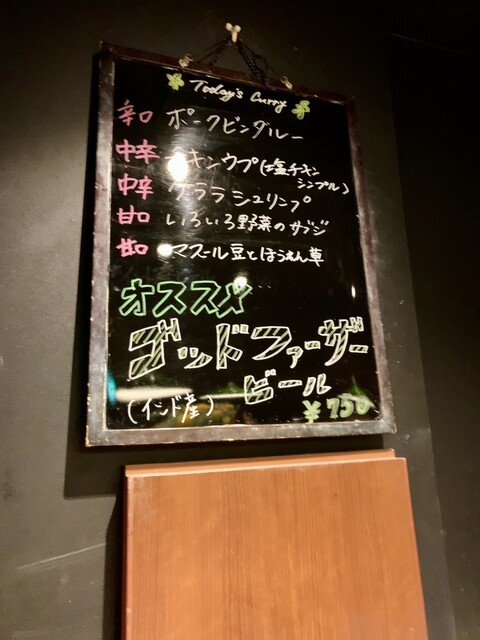 Today's Curry
辛口 ポークビンダルー
中辛 チキンウプ(塩チキン
シンプル)
中辛 ケララシュリンプ
甘口 いろいろ野菜のサブジ
甘口 マスール豆とほうれん草
オススメ
ゴッドファーザー
ビール
(インド産) ¥750